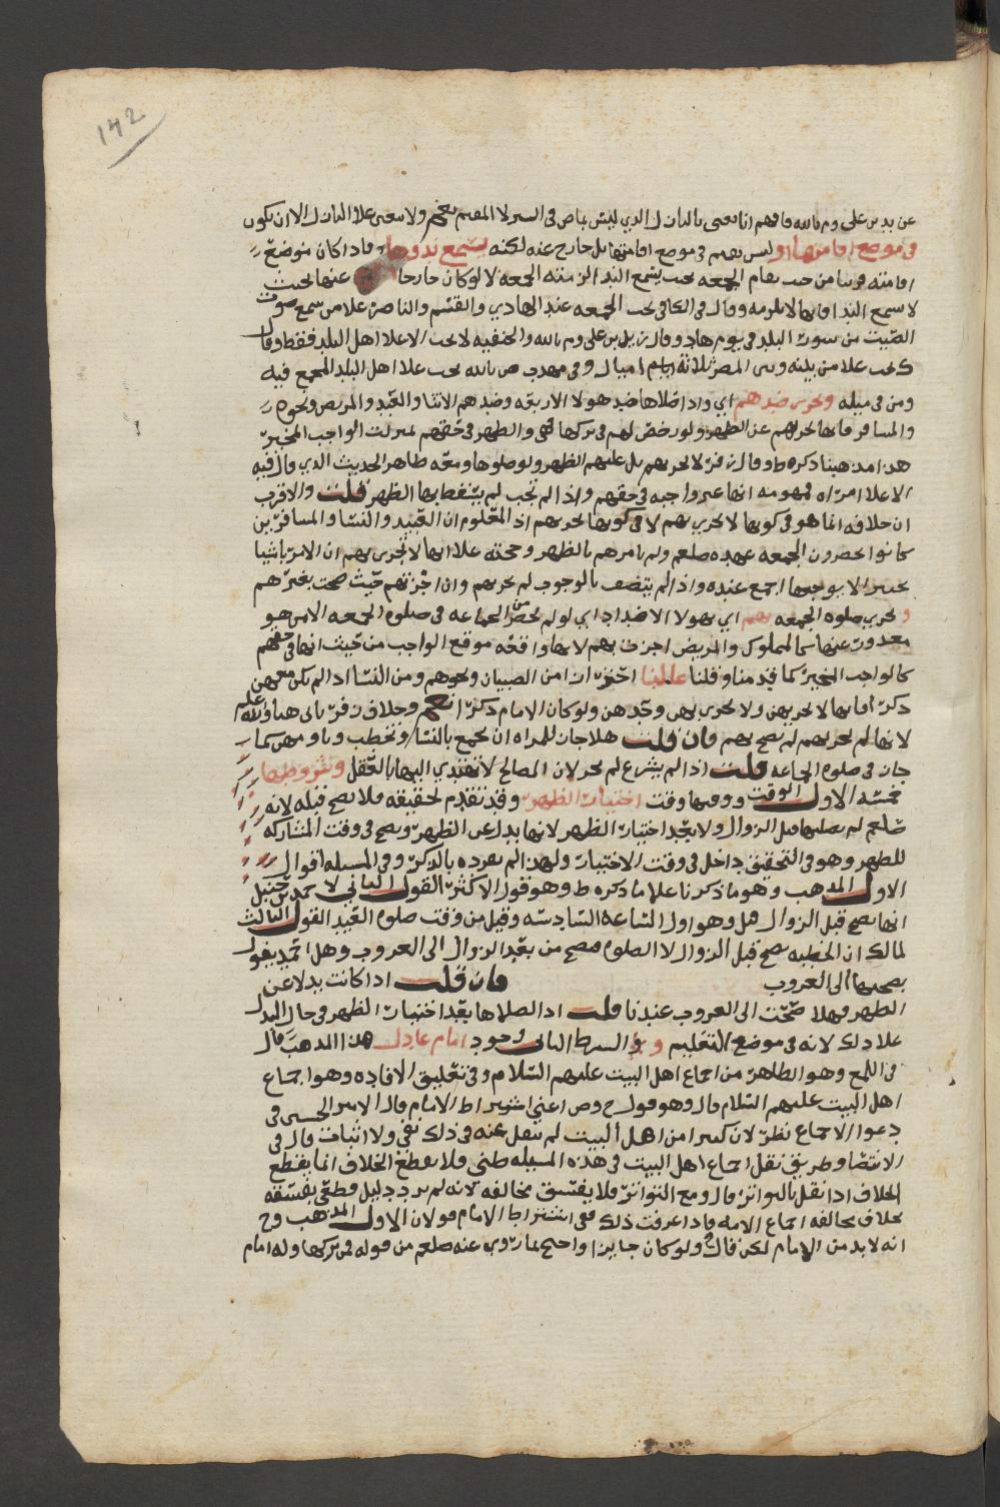 142
عن يدين على وم بالله فافهم انا نعني بالنازل الذي ليس بماض في السير لا المقيم نعم ولا تجب على النازل الا ان يكون
في موضع اقامتها او ليس بمقيم في موضع اقامتها بل خارج عنه لكنه يسمع نداوها فاذا كان موضع
اقامته قريبا من حيث تقام الجمعه بحيث يسمع الندا لزمته الجمعه لا لو كان خارجا عنها بحيث
لا يسمع الندا فانها لا تلزمه وقال في الكافي تجب الجمعه عند الهادي والقسم والناصر على من سمع صوت
الصيت من سور البلد في يوم هاد وقال زيد بن علي وم بالله والحنفيه لا تجب الا على اهل البلد فقط وقال
ك تجب على من بينه وبين المصر ثلاثة اميال وفي مهذب ص بالله تجب على اهل البلد المجمع فيه
ومن في ميله وتجزي ضدهم اي واذا صلاها ضد هولا الاربعه وضدهم الانثى والعبد والمريض ونحوه
والمسافر فانها تجزيهم عن الظهر ولو رخص لهم في تركها فهي والظهر في حقهم بمنزلة الواجب المخير
هذا مذهبنا ذكره ط وقال زفر لا تجزيهم بل عليهم الظهر ولو صلوها ومعه ظاهر الحديث الذي قال فيه
الا على امراه فمفهومه انها غير واجبه في حقهم واذا لم تجب لم يسقط بها الظهر قلت والاقرب
ان خلافه انما هو في كونها لا تجزي بهم لا في كونها تجزيهم اذ المعلوم ان العبيد والنسا والمسافرين
كانوا يحضرون الجمعه عهده صلعم ولم يامرهم بالظهر وحجته على انها لا تجزي بهم ان الامر باشيا
تخيير الا بوجوبها اجمع عنده واذا لم يتصف بالوجوب لم تجزيهم وان اجزتهم حيث صحت بغيرهم
و تجزي صلوه الجمعه بهم اي بهولا الاضداد اي لو لم يحضر من الجماعه في صلوه الجمعه الا من هو
معذور عنها كالمملوك والمريض اجزت بهم لانها واقعه موقع الواجب من حيث انها في حقهم
كالواجب المخير كما قدمنا وقلنا غالبا احترازا من الصبيان ونحوهم ومن النسا اذا لم يكن معهن
ذكر فانها لا تجزيهن ولا تجزي بهن وحدهن ولو كان الامام ذكرا نعم وخلاف زفر ياتي هنا وقوله عليه
لانها لم تجزيهم لم تصح بهم فان قلت هلا جاز للمراه ان تجمع بالنسا وتخطب وتاومهن كما
جاز في صلوه الجماعه قلت اذا لم يشرع لم يجز لان المصالح لا نهتدي اليها بالعقل وشروطها
خمسه الاول الوقت ووقتها وقت اختيار الظهر وقد تقدم تحقيقه فلا تصح قبله لانه
صلعم لم يصلها قبل الزوال ولا بعد اختيار الظهر لانها بدل عن الظهر وتصح في وقت المشاركه
للظهر وهو في التحقيق داخل في وقت الاختيار ولهذا لم نفرده بالذكر وفي المسيله اقوال
الاول المذهب وهو ما ذكرنا على ما ذكره ط وهو قول الاكثر القول الثاني لاحمد بن حنبل
انها تصح قبل الزوال قيل وهو اول الساعه السادسه وقيل من وقت صلوه العيد القول الثالث
لمالك ان الخطبه تصح قبل الزوال لا الصلوه فتصح من بعد الزوال الى الغروب وهل احمد يقول
بصحتها الى الغروب فان قلت اذا كانت بدلا عن
الظهر فهلا صحت الى الغروب عندنا قلت اذا لصلاها بعد اختيار الظهر في حال البدل
على ذلك لانه في موضع التعليم و الشرط الثاني وجود امام عادل هذا المذهب قال
في اللمع وهو الظاهر من اجماع اهل البيت عليهم السلام وفي تعليق الافاده وهو اجماع
اهل البيت عليهم السلام قال وهو قول ح وص اعني اشتراط الامام قال الامير الحسين في
دعوا الاجماع نظر لان كثيرا من اهل البيت لم ينقل عنه في ذلك نفي ولا اثبات قال في
الانتصار وطريق نقل اجماع اهل البيت في هذه المسيله ظني فلا يقطع الخلاف انما يقطع
الخلاف اذا نقل بالتواتر قال ومع التواتر فلا يفسق مخالفه لانه لم يرد دليل قطعي بفسقه
بخلاف مخالفه اجماع الامه فاذا عرفت ذلك ففي اشتراط الامام قولان الاول المذهب وح
انه لا بد من الامام لكن قال ولو كان جايرا واحتج بما روي عنه صلعم من قوله فمن تركها وله امام